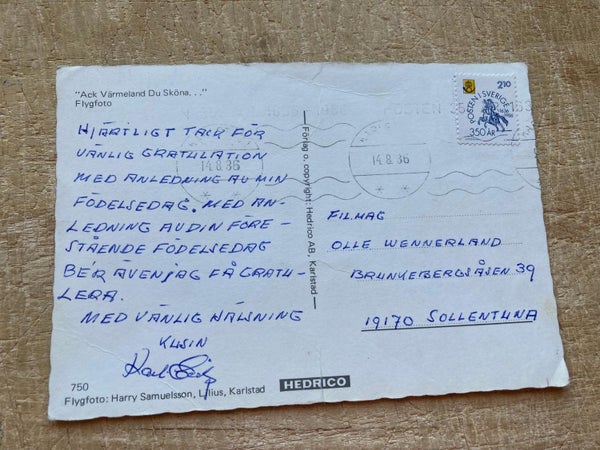 "Ack Värmeland Du Sköna. . ."
Flygfoto
HJÄRTLIGT TACK FÖR
VÄNLIG GRATULATION
MED ANLEDNING AV MIN
FÖDELSEDAG. MED AN-
LEDNING AV DIN FÖRE-
STÅENDE FÖDELSEDAG
BER ÄVEN JAG FÅ GRATU-
LERA.
MED VÄNLIG HÄLSNING
KUSIN
750
Flygfoto: Harry Samuelsson, Lillus, Karlstad
Förlag o. copyright: Hedrico AB, Karlstad
HEDRICO
14.8.86
14.8.86
210
POSTEN I SVERIGE
350 ÅR
FIL.MAG
OLLE WENNERLAND
BRUNKEBERGSÅSEN 39
19170 SOLLENTUNA